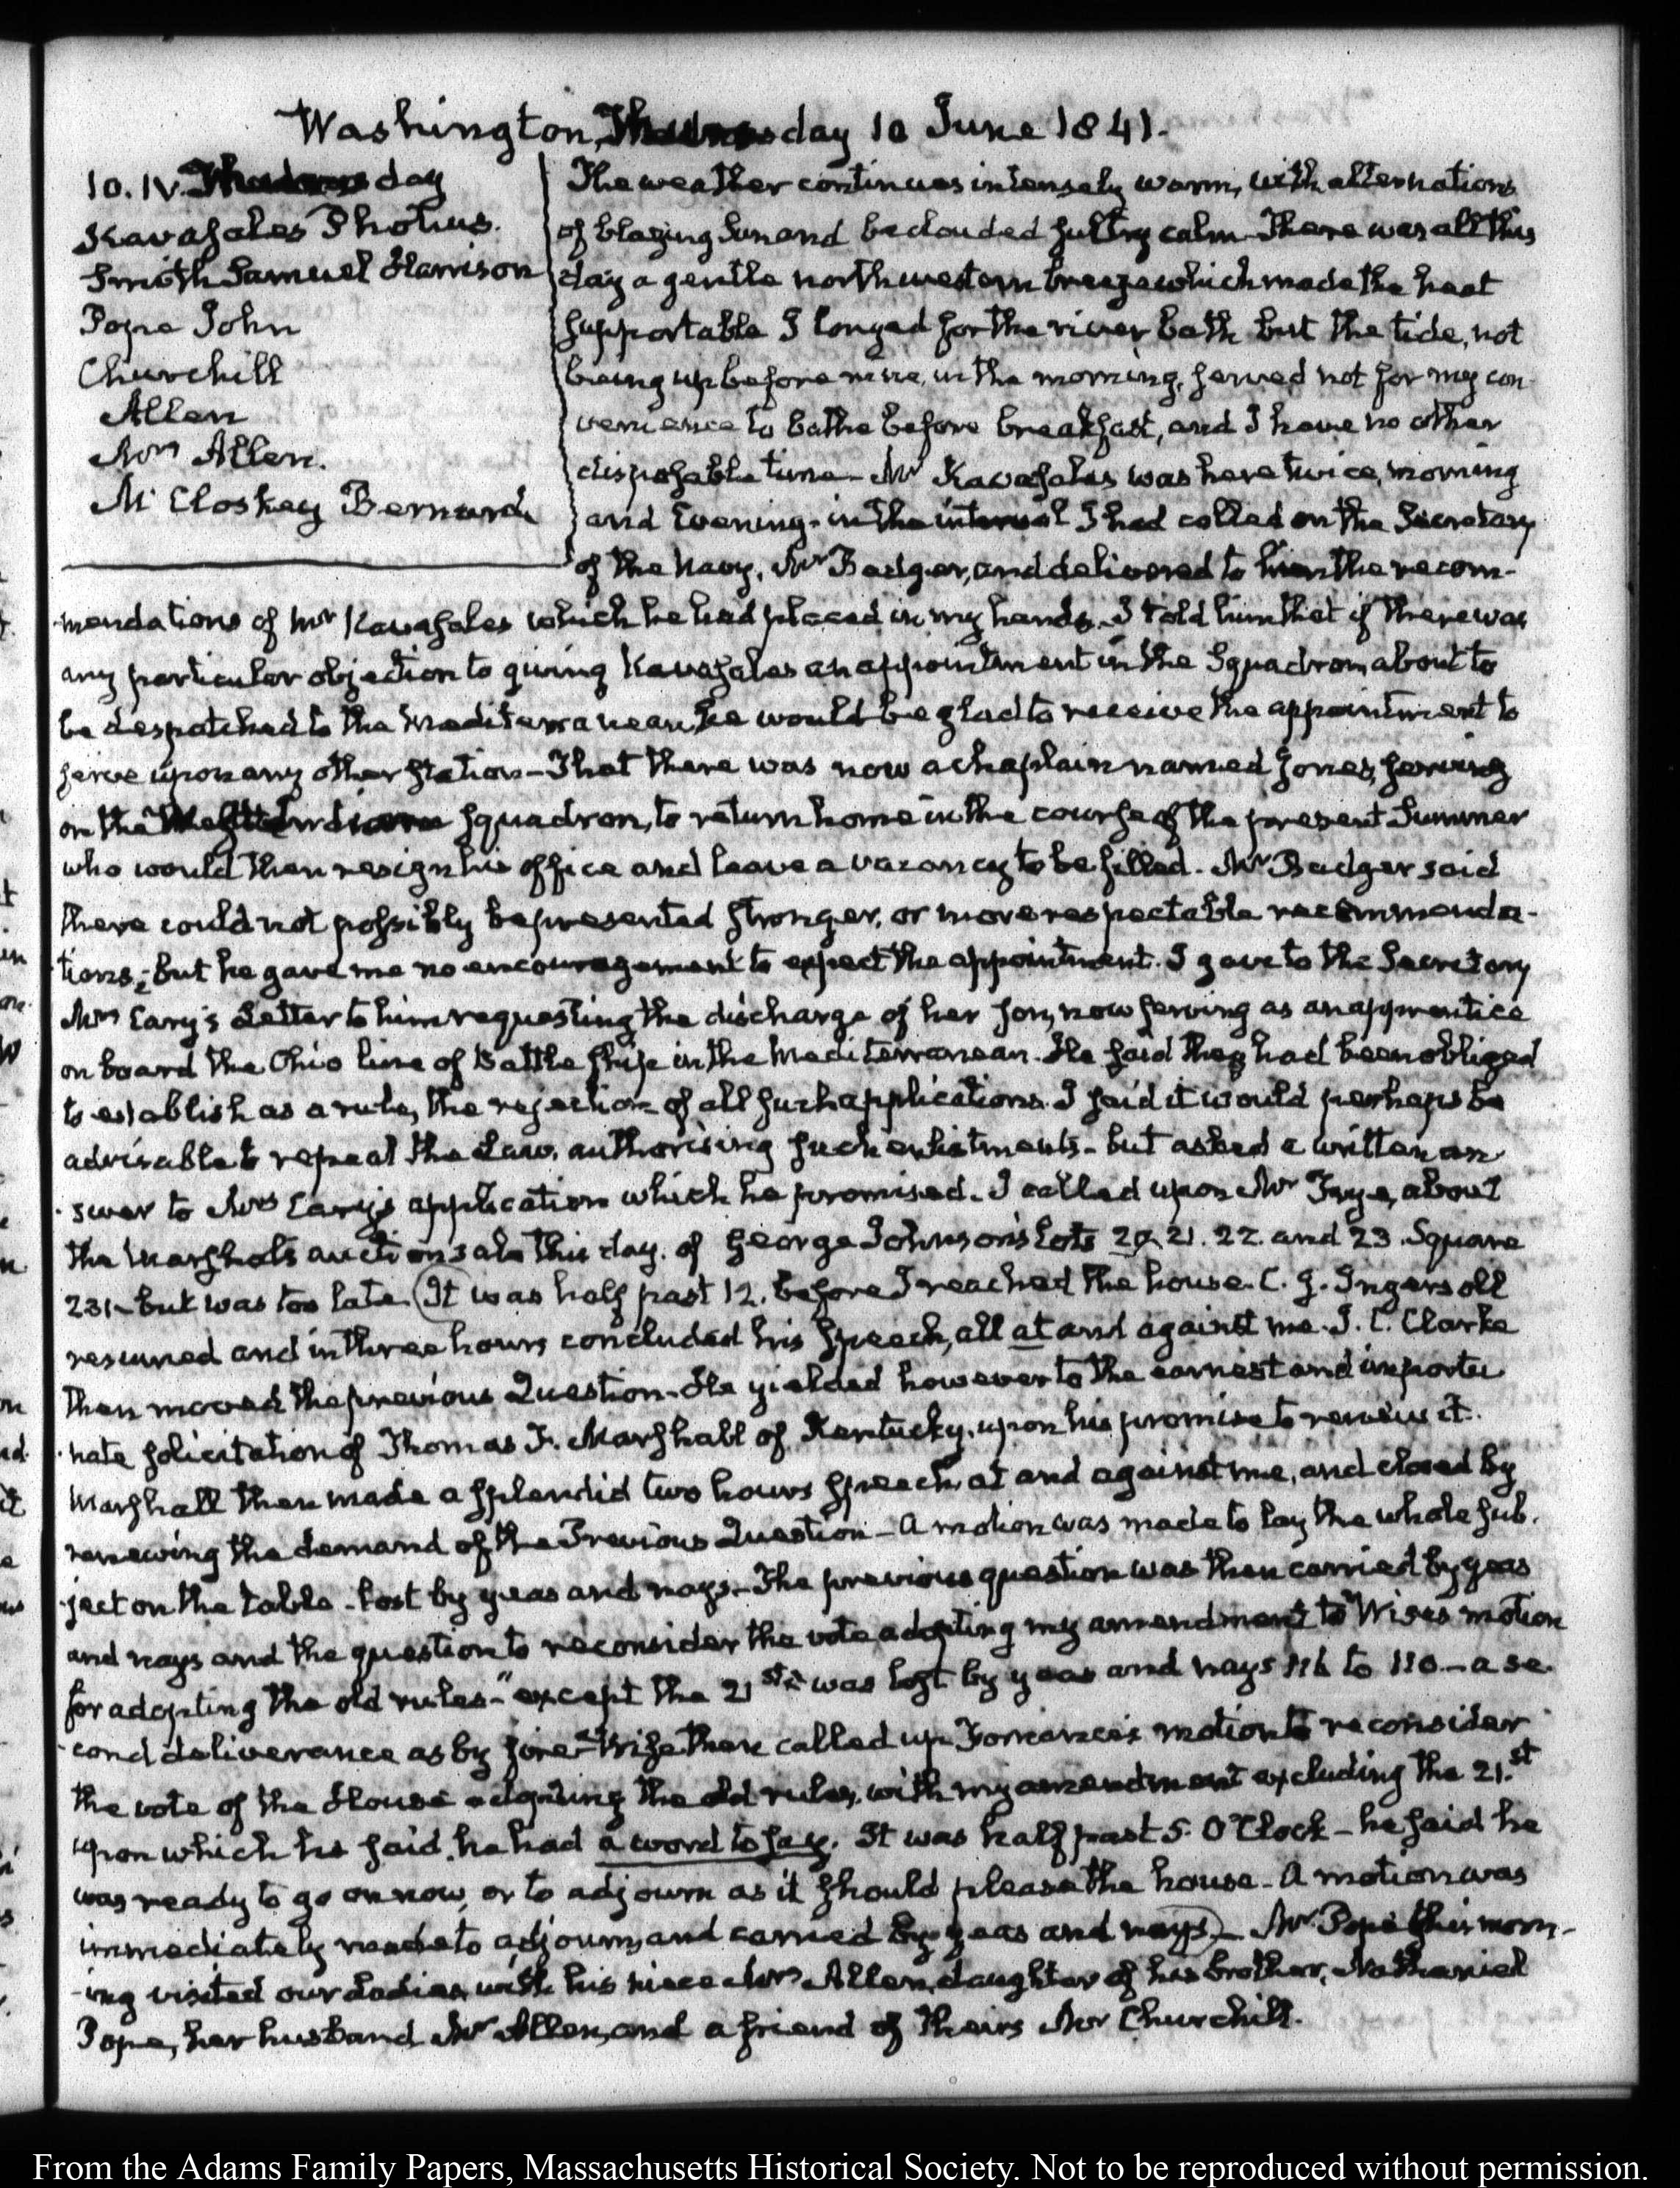 Washington, Thursday 10 June 1841.
10. IV. Thursday
Kavasales Photius.
Smith Samuel Harrison
Pope John
Churchill
Allen
Mrs Allen.
McCloskey Bernard
The weather continues intensely warm, with alternations
of blazing Sun and beclouded sultry calm. There was all this
day a gentle northwestern breeze which made the heat
supportable I longed for the river bath but the tide, not
being up before nine, in the morning, served not for my con-
venience to bathe before breakfast, and I have no other
disposable time. Mr Kavasales was here twice, morning
and Evening. in the interval I had called on the Secretary
of the Navy, Mr Badger, and delivered to him the recom-
mendations of Mr Kavasales which he had placed in my hands. I told him that if there was
any particular objection to giving Kavasales an appointment in the Squadron about to
be despatched to the Mediterranean he would be glad to receive the appointment to
serve upon any other station—That there was now a chaplain named Jones, serving
on the West Indian squadron, to return home in the course of the present Summer
who would then resign his office and leave a vacancy to be filled. Mr Badger said
there could not possibly be presented stronger, or more respectable recommenda-
tions; but he gave me no encouragement to expect the appointment. I gave to the Secretary
Mrs Cary's Letter to him requesting the discharge of her son, now serving as an apprentice
on board the Ohio line of Battle ship in the Mediterranean. He said they had been obliged
to establish as a rule, the rejection of all such applications. I said it would perhaps be
advisable to repeal the Law, authorising such enlistments—but asked a written an-
swer to Mrs Cary's application which he promised. I called upon Mr Frye, about
the Marshal's auction sale this day. of George Johnson's Lots 20. 21. 22. and 23. Square
231—but was too late. (It was half past 12. before I reached the house. C. J. Ingersoll
resumed and in three hours concluded his speech, all at and against me. J. C. Clarke
then moved the previous Question—He yielded however to the earnest and importu
nate solicitation of Thomas F. Marshall of Kentucky, upon his promise to renew it.
Marshall then made a splendid two hours speech at and against me, and closed by
renewing the demand of the Previous Question—A motion was made to lay the whole sub-
ject on the table—lost by yeas and nays—The previous question was then carried by yeas
and nays and the question to reconsider the vote adopting my amendment to Wise's motion
for adopting the old rules—"except the 21st" was lost by yeas and nays 116 to 110—a se-
cond deliverance as by fire—Wise then called up Fornance's motion to reconsider
the vote of the House adopting the old rules, with my amendment excluding the 21.st
upon which he said, he had a word to say. It was half past 5. O'Clock—he said he
was ready to go on now, or to adjourn as it should please the house—A motion was
immediately made to adjourn, and carried by yeas and nays)—Mr Pope this morn-
ing visited our Ladies, with his niece Mrs Allen, daughter of his brother, Nathaniel
Pope, her husband Mr Allen, and a friend of theirs Mr Churchill.
From the Adams Family Papers, Massachusetts Historical Society. Not to be reproduced without permission.